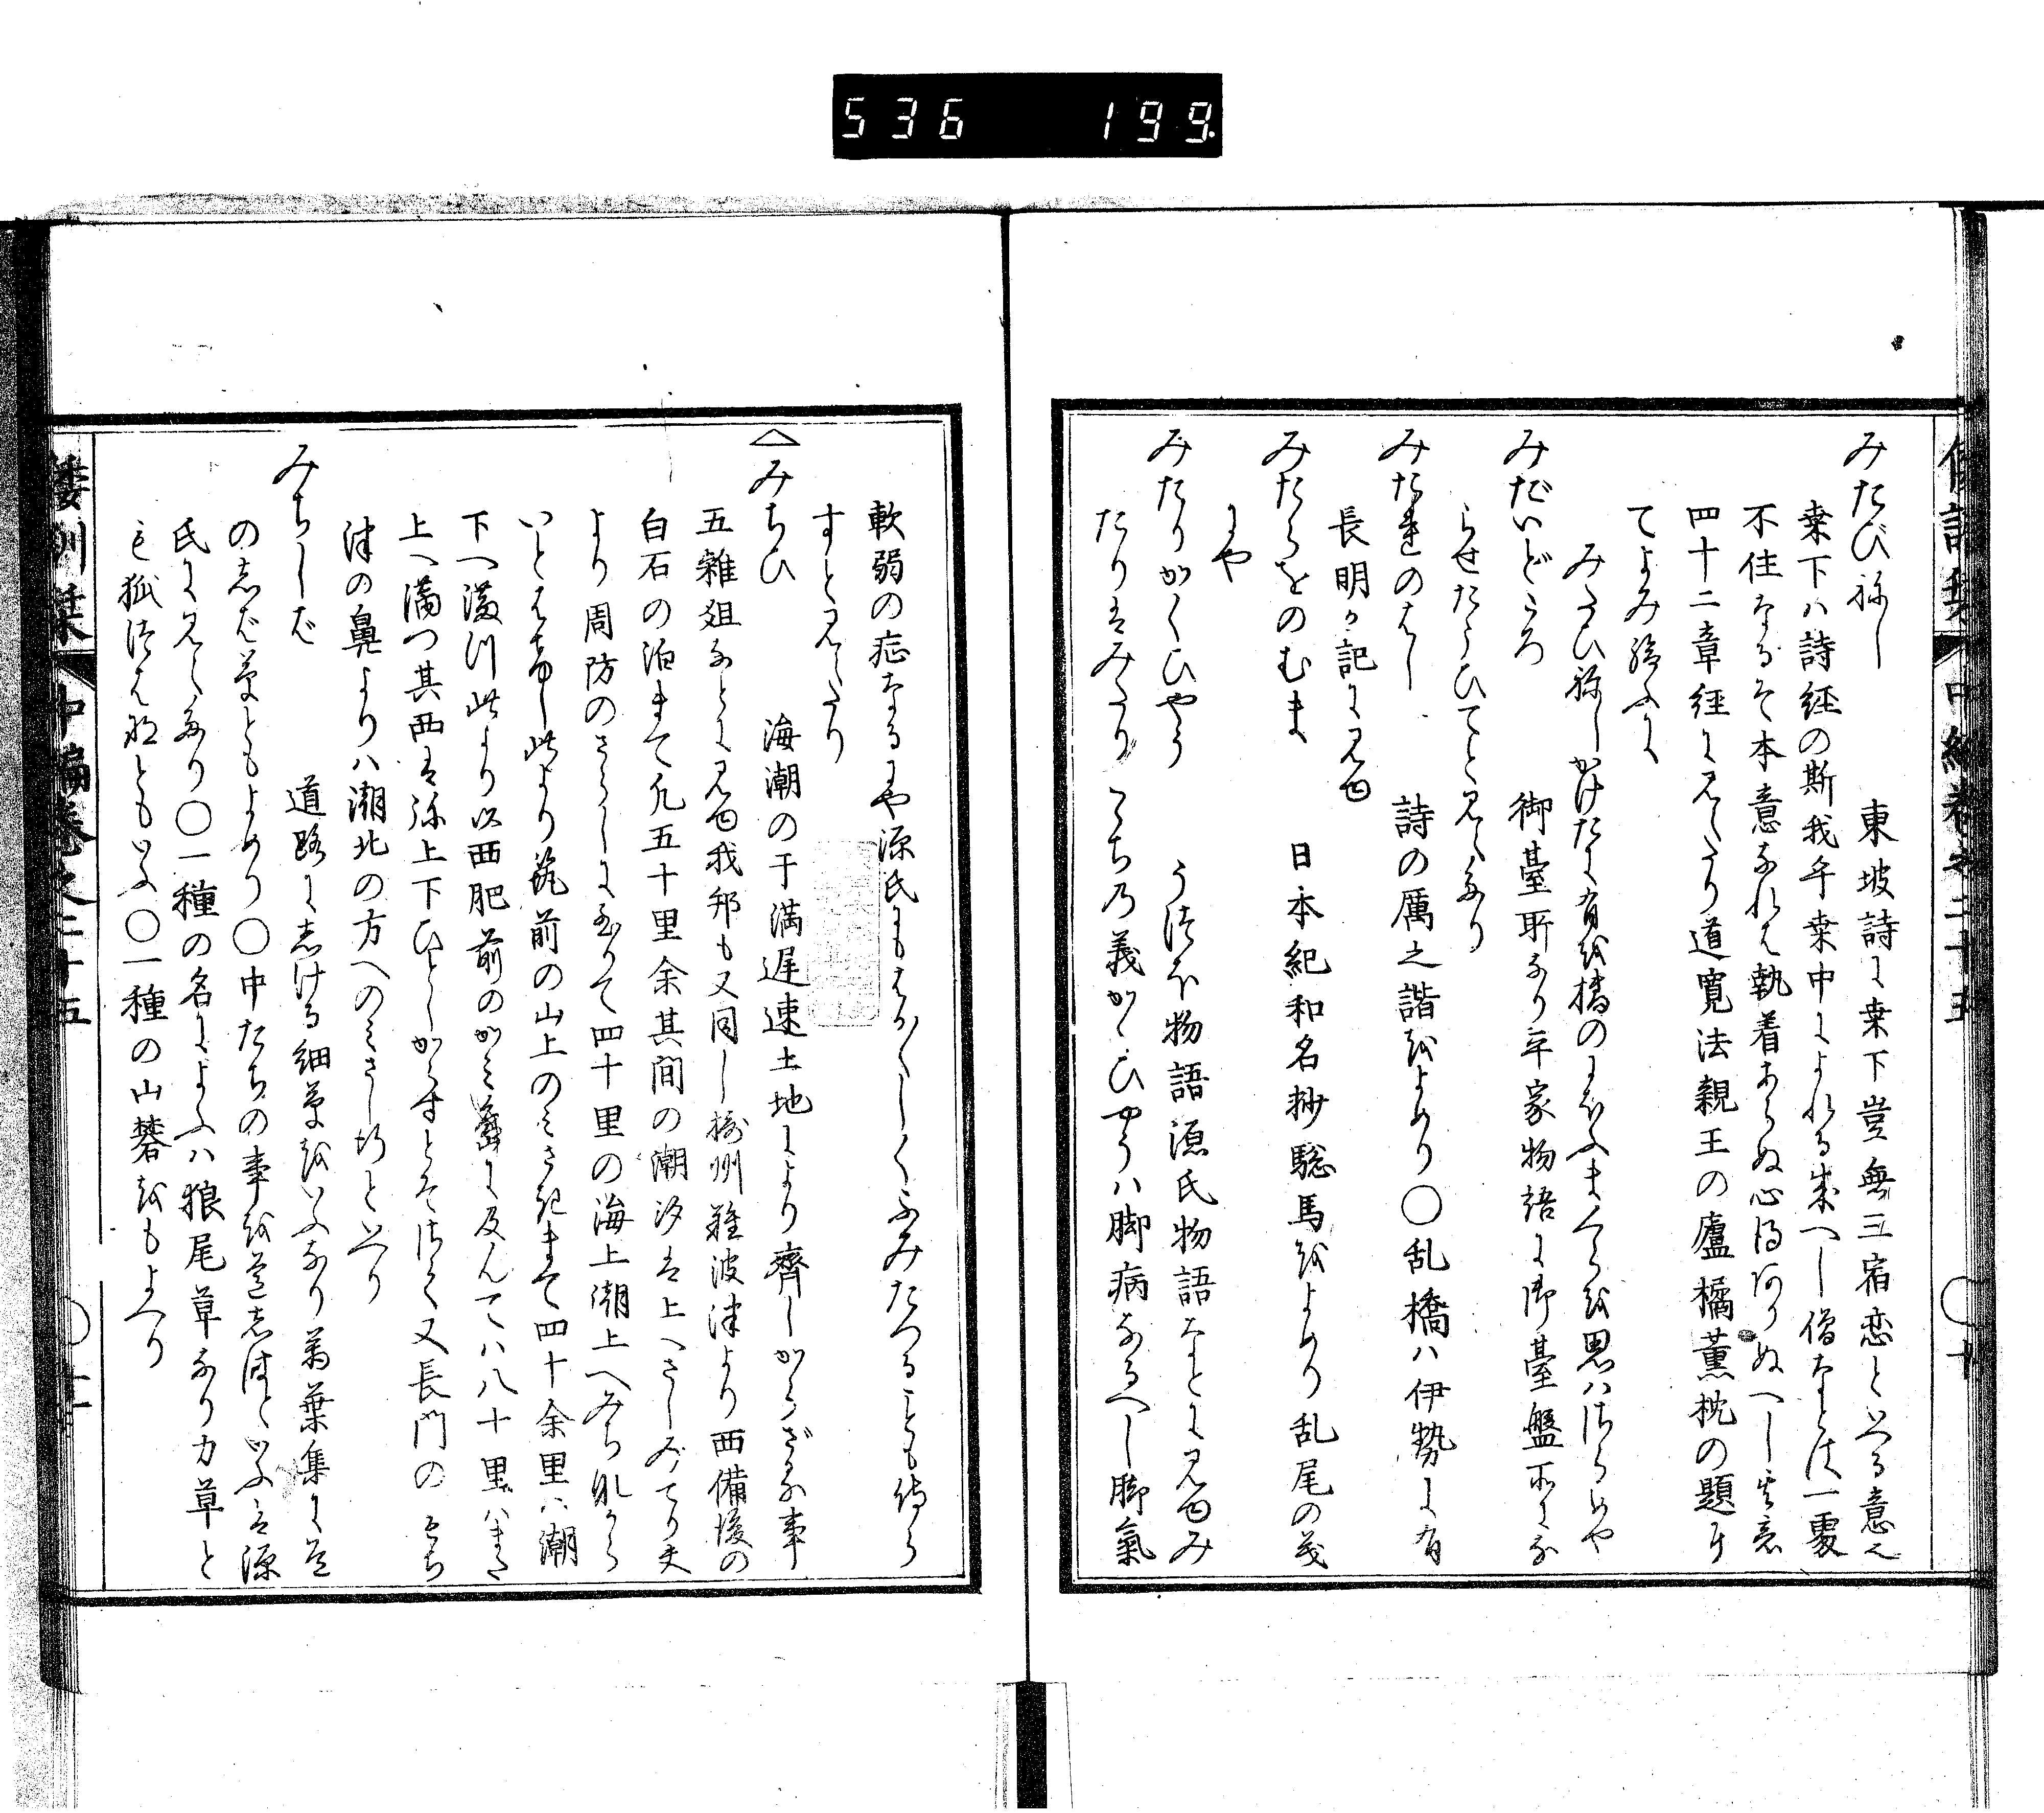 536 199
みたび祢し 東坡詩に桒下豈無三宿恋といへる意也
桒下ハ詩経の斯我乎桒中によれる成へし僧なとは一處
不住なるそ本意なれは執着あらぬ心得ありぬへし其意
四十二章経に見えたり道寛法親王の廬橘薫枕の題に
てよみ給ふに
みたひ祢しかけたに有を橘のにほふまくらを思ハさらめや
みだいどころ 御臺所なり平家物語に御臺盤所にな
らせたまひてと見えたり
みだれのはし 詩の厲之諧をよめり〇乱橋ハ伊勢に有
長明か記に見ゆ
みたらをのむま 日本紀和名抄騘馬をよめり乱尾の義
にや
みたりかくひやう うつほ物語源氏物語なとに見ゆみ
たりはみたりこゝち乃義かくひやうハ脚病なるへし脚氣
軟弱の症なるにや源氏にもはかくしくふみたつることも侍ら
すと見えたり
△みちひ 海潮の干満遅速土地により齊しからざる事
五雜爼なとに見ゆ我邦も又同し摂州難波津より西備後の
白石の泊まて凡五十里余其間の潮汐は上へさしみてり夫
より周防のさらしに至りて四十里の海上潮上へみち
いとはやし此より筑前の山上のみさきまて四十余里ハ潮
下へ満川此より以西肥前のかみ嶌に及んて八十里ハまた
上へ満つ其西は弥上下ひとしからすとそ又長門の
津の鼻よりハ潮北の方へのみさし行といへり
みちしば 道路にしける細草をいふなり萬葉集に道
の志ば草ともよめり〇中たちの事を道しはといふは源
氏に見えたり〇一種の名によふハ狼尾草なり力草と
も狐ともいふ〇一種の山礬をもよへり
倭訓栞 中編巻之二十五